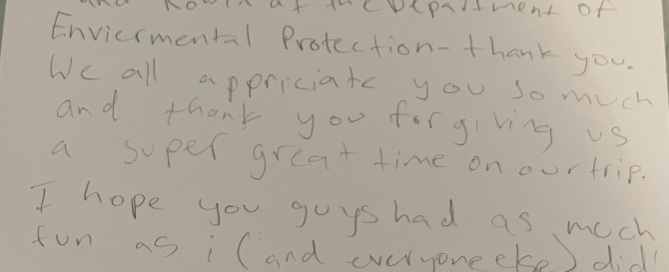 at the Department of
Enviermental Protection - thank you.
We all appriciate you so much
and thank you for giving us
a super great time on our trip.
I hope you guys had as much
fun as i (and everyone else) did!